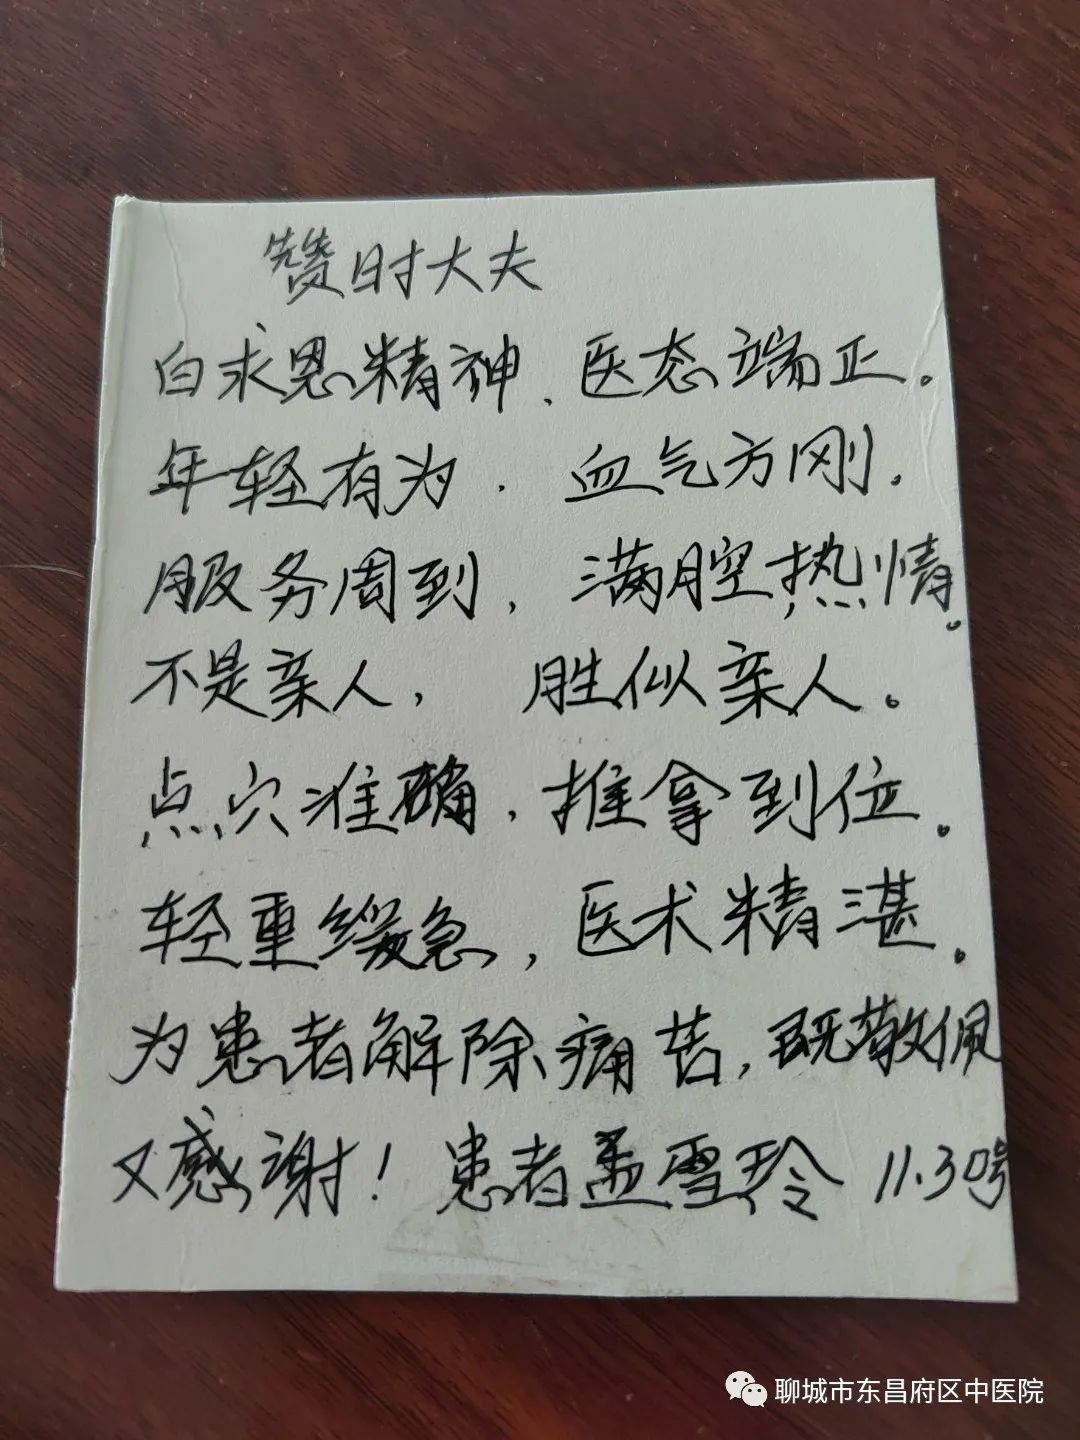 赞时大夫
白求恩精神、医态端正。
年轻有为．血气方刚．
服务周到，满腔热情。
不是亲人，胜似亲人。
点穴准确，推拿到位．
轻重缓急，医术精湛．
为患者解除痛苦，既敬佩
又感谢！患者孟雪玲 11.30号
聊城市东昌府区中医院